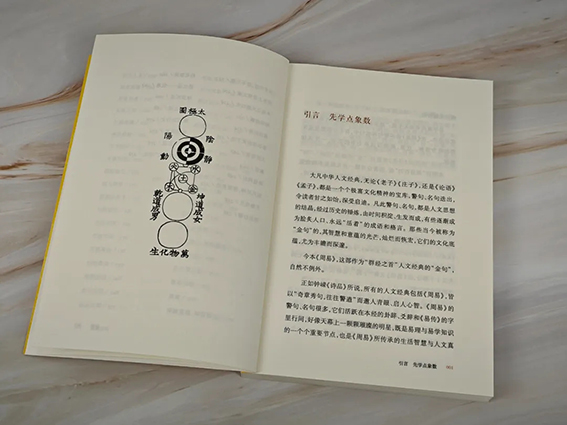 太極圖
陰靜
陽動
坤道成女
乾道成男
萬物化生
引言 先学点象数
大凡中华人文经典，无论《老子》《庄子》，还是《论语》
《孟子》，都是一个个极富文化精神的宝库。警句、名句迭出，
令读者甘之如饴，深受启迪。凡此警句、名句，都是人文思想
的结晶，经过历史的锤炼，由时间积淀、生发而成，有些逐渐成
为脍炙人口、永远“活着”的成语和格言。那些当今被称为
“金句”的，其智慧和意蕴的光芒，灿烂而恢宏，它们的文化底
蕴，尤为丰赡而深邃。
今本《周易》，这部作为“群经之首”人文经典的“金句”，
自然不例外。
正如钟嵘《诗品》所说，所有的人文经典包括《周易》，皆
以“奇章秀句，往往警遒”而邀人青睐，启人心智。《周易》的
警句、名句很多，它们活跃在本经的卦辞、爻辞和《易传》的字
里行间，好像天幕上一颗颗璀璨的明星，既是易理与易学知识
的一个个重要节点，也是《周易》所传承的生活智慧与人文真
引言 先学点象数